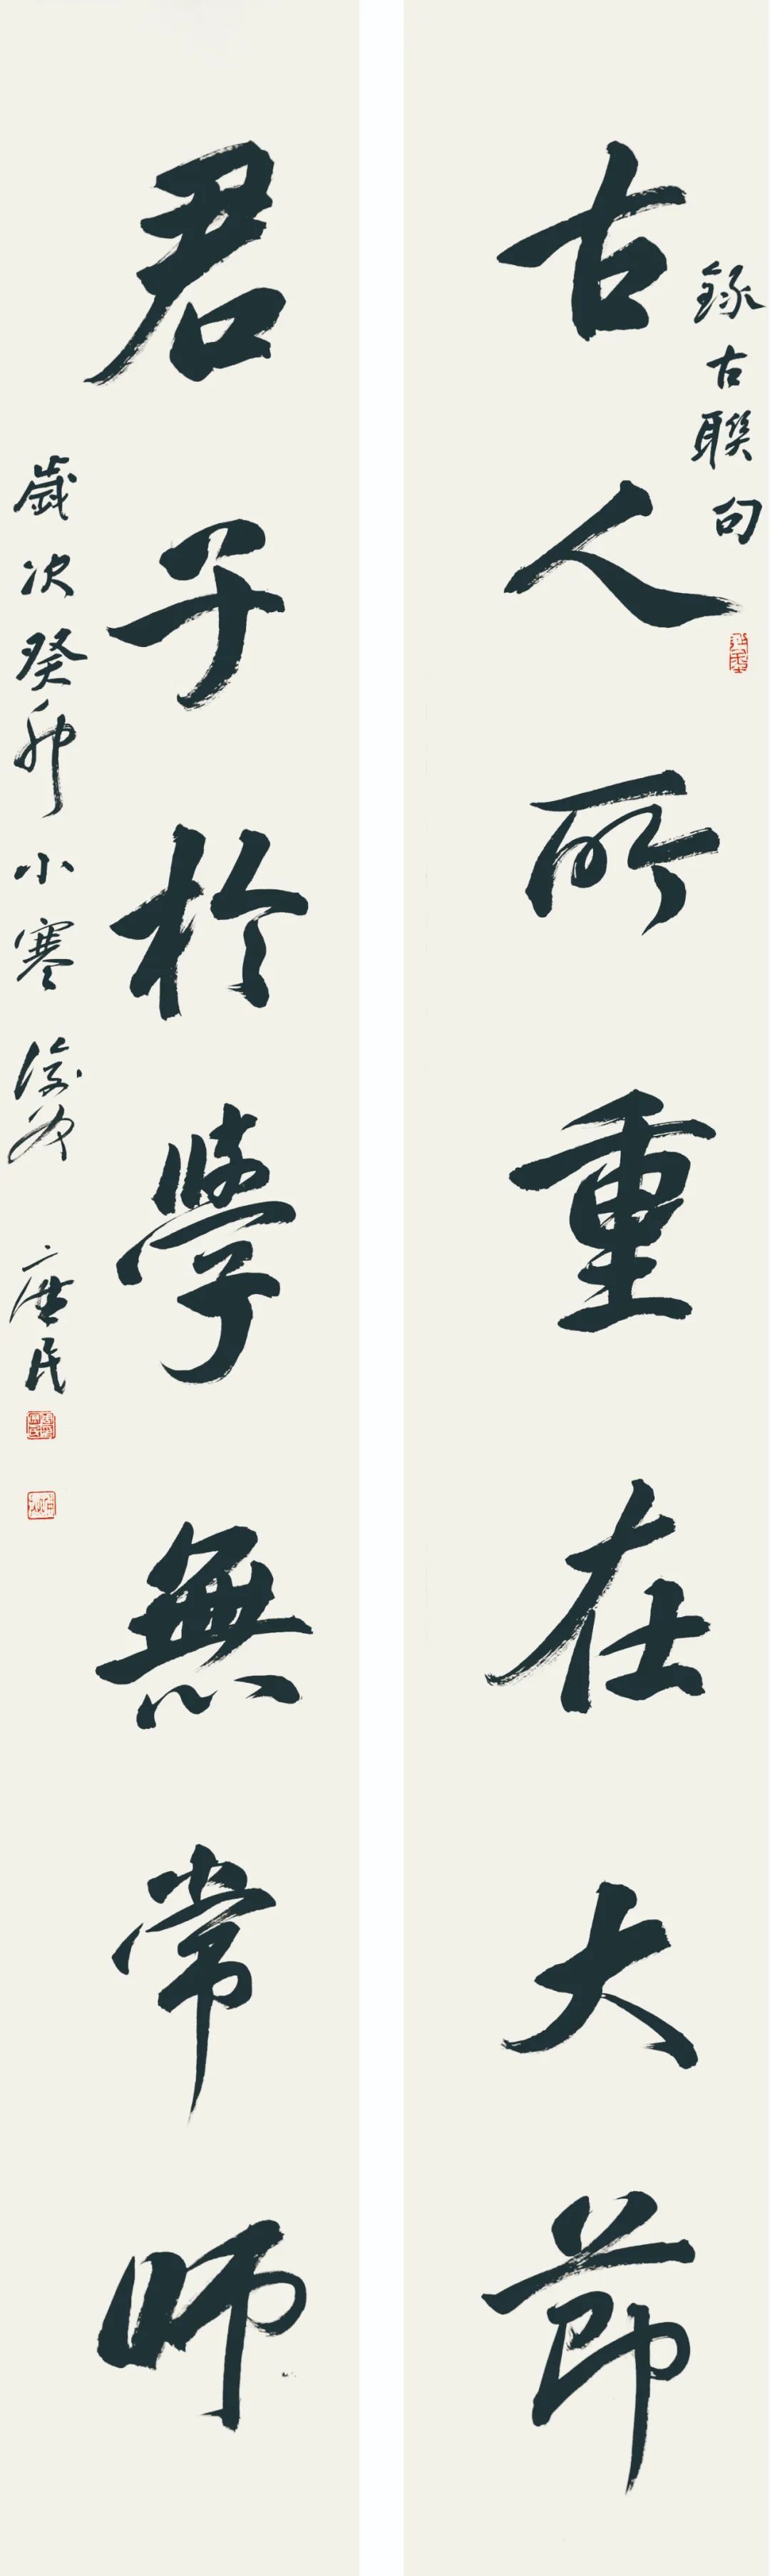 錄古聯句
古人所重在大節
君子於學無常師
歲次癸卯小寒後 庶民